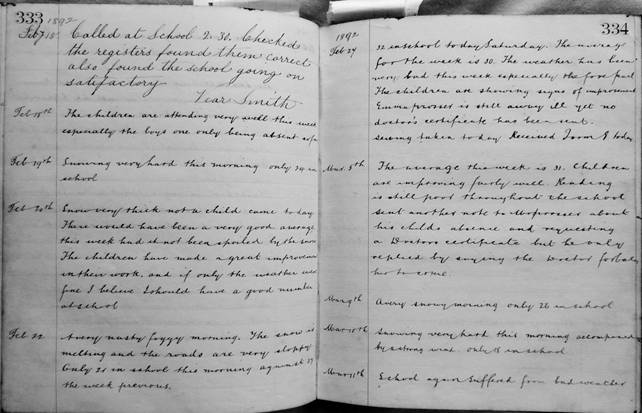 333 1892
Feb 18 Called at School 2.30. Checked
the registers found them correct
also found the school going on
satisfactory
Vear Smith
Feb 18th The children are attending very well this week
especially the boys one only being absent
Feb 19th Snowing very hard this morning only 24 in
school
Feb 20th Snow very thick not a child came to day
There would have been a very good average
this week had it not been spoiled by the snow
The children have made a great improvement
in their work, and if only the weather
fine I believe I should have a good number
at school
Feb 22 A very nasty foggy morning. The snow is
melting and the roads are very sloppy
Only 21 in school this morning against 37
the week previous.
334
1892
Feb 27 32 in school to day Saturday. The average
for the week is 30. The weather has been
very bad this week especially the fore part
The children are showing signs of improvement
Emma prosser is still away ill yet no
doctors certificate has been sent.
sewing taken to day Received to day
Mar. 5th The average this week is 31. Children
are improving fairly well. Reading
is still poor throughout the school
sent another note to Mr prosser about
his childs absence and requesting
a Doctors certificate but he only
replied by saying the Doctor forbade
her to come.
Mar 9th A very snowy morning only 26 in school
Mar 10th Snowing very hard this morning accompanied
by a strong wind only in school
Mar 11th School again suffered from bad weather